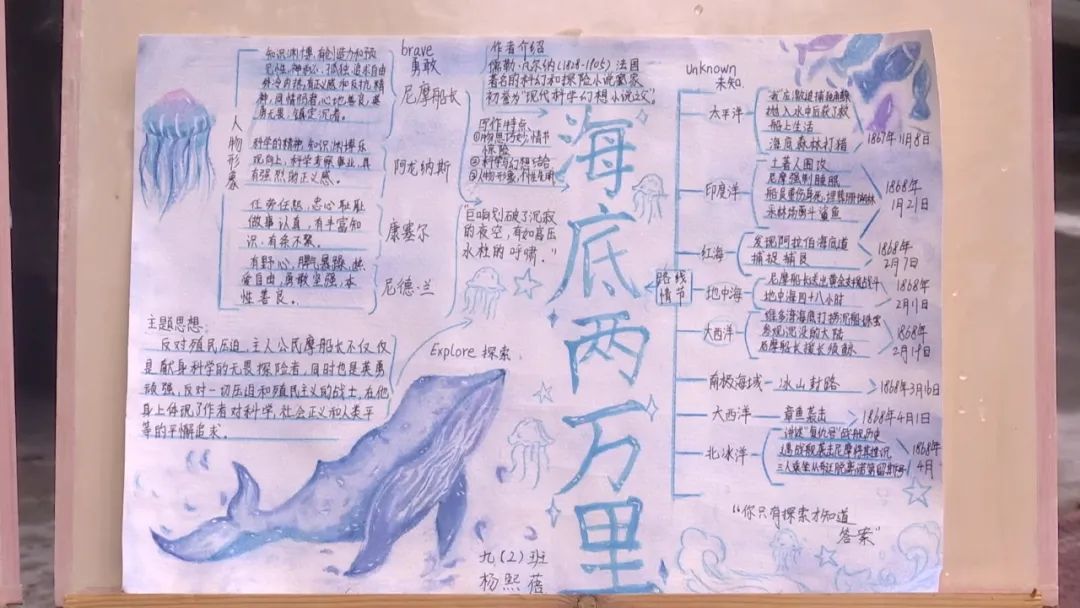 人物形象
知识渊博,有创造力和预
见性,神秘,孤独,追求自由
外冷内热,有正义感和反抗精
神,同情弱者,心地善良,英
勇无畏,镇定沉着。
brave
勇敢
尼摩船长
科学的精神,知识渊博乐
观向上,科学考察事业,具
有强烈的正义感。
阿龙纳斯
任劳任怨,忠心耿耿
做事认真,有丰富知
识,有条不紊。
康塞尔
有野心,脾气暴躁,热
爱自由,勇敢坚强,本
性善良。
尼德·兰
主题思想:
反对殖民压迫,主人公尼摩船长不仅仅
是献身科学的无畏探险者,同时也是英勇
顽强,反对一切压迫和殖民主义的战士,在他
身上体现了作者对科学,社会正义和人类平
等的不懈追求。
作者介绍
儒勒·凡尔纳(1828-1905)法国
著名的科幻和探险小说家
初誉为“现代科学幻想小说之父”。
写作特点
①构思巧妙,情节
惊险
②科学与幻想结合
③人物形象,个性鲜明
巨响划破了沉寂
的夜空,有如高压
水柱的呼啸。”
Explore 探索
海底两万里
九(2)班
杨熙蓓
unknown
未知
路线
情节
太平洋
抛入水中后获了救
船上生活
海底森林打猎
1867年11月8日
印度洋
土著人围攻
尼摩强制睡眠
采珠场勇斗鲨鱼
1868年
1月21日
红海
发现阿拉伯海底道
捕捉捕良
1868年
2月7日
地中海
尼摩船长送出黄金支援战斗
地中海四十八小时
1868年
2月11日
大西洋
维多湾海底打捞沉船珠宝
发现沉没的大陆
1868年
2月19日
南极海域
冰山封路
1868年3月16日
大西洋
章鱼袭击
1868年4月1日
北冰洋
讲述“复仇号”战舰历史
1868年
4月
“你只有探索才知道
答案”